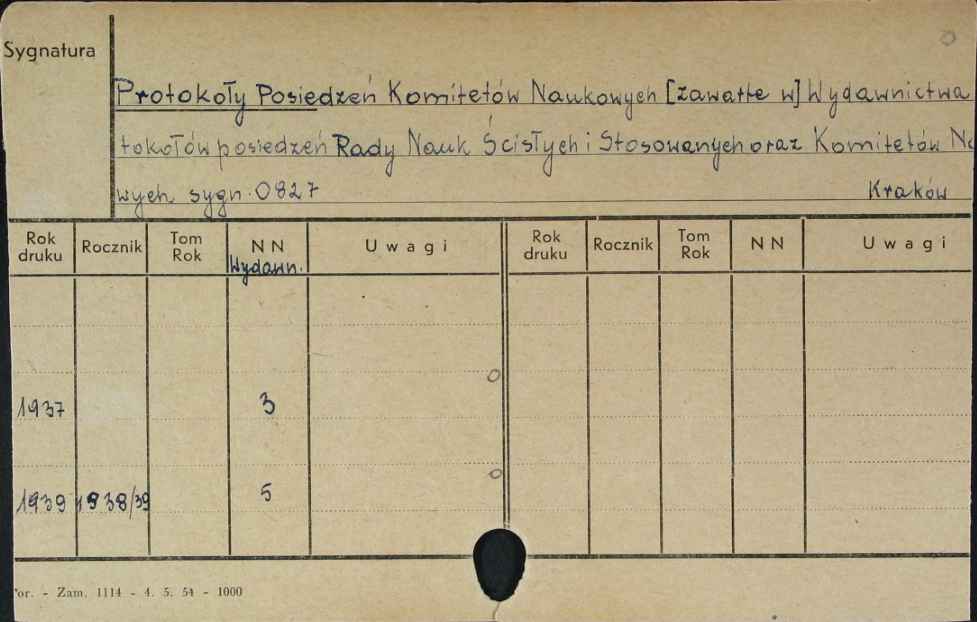 Sygnatura
Protokoły Posiedzeń Komitetów Naukowych [zawarte w] Wydawnictwa
tokołów posiedzeń Rady Nauk Ścisłych i Stosowanych oraz Komitetów Na
wych sygn. 0827 Kraków
Rok druku Rocznik Tom Rok NN Uwagi Rok druku Rocznik Tom Rok NN Uwagi
Wydawn.
1937 3
1939 1938/39 5
or. - Zam. 1114 - 4. 5. 54 - 1000